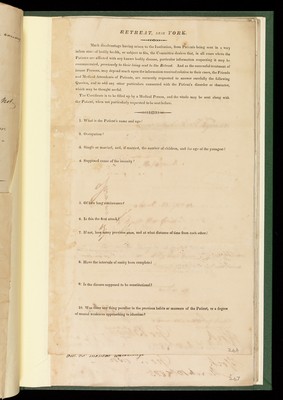 RETREAT, near YORK.
Much disadvantage having arisen to the Institution, from Patients being sent in a very
infirm state of bodily health, or subject to fits, the Committee desires that, in all cases where the
Patients are afflicted with any known bodily disease, particular information respecting it may be
communicated, previously to their being sent to the Retreat. And as the successful treatment of
insane Persons, may depend much upon the information received relative to their cases, the Friends
and Medical Attendants of Patients, are earnestly requested to answer carefully the following
Queries, and to add any other particulars connected with the Patient's disorder or character,
which may be thought useful.
The Certificate is to be filled up by a Medical Person, and the whole may be sent along with
the Patient, when not particularly requested to be sent before.
1. What is the Patient's name and age?
2. Occupation?
3. Single or married, and, if married, the number of children, and the age of the youngest?
4. Supposed cause of the insanity?
5. Of how long continuance?
6. Is this the first attack?
7. If not, how many previous ones, and at what distance of time from each other?
8. Have the intervals of sanity been complete?
9. Is the disease supposed to be constitutional?
10. Was there any thing peculiar in the previous habits or manners of the Patient, or a degree
of mental weakness approaching to idiotism?